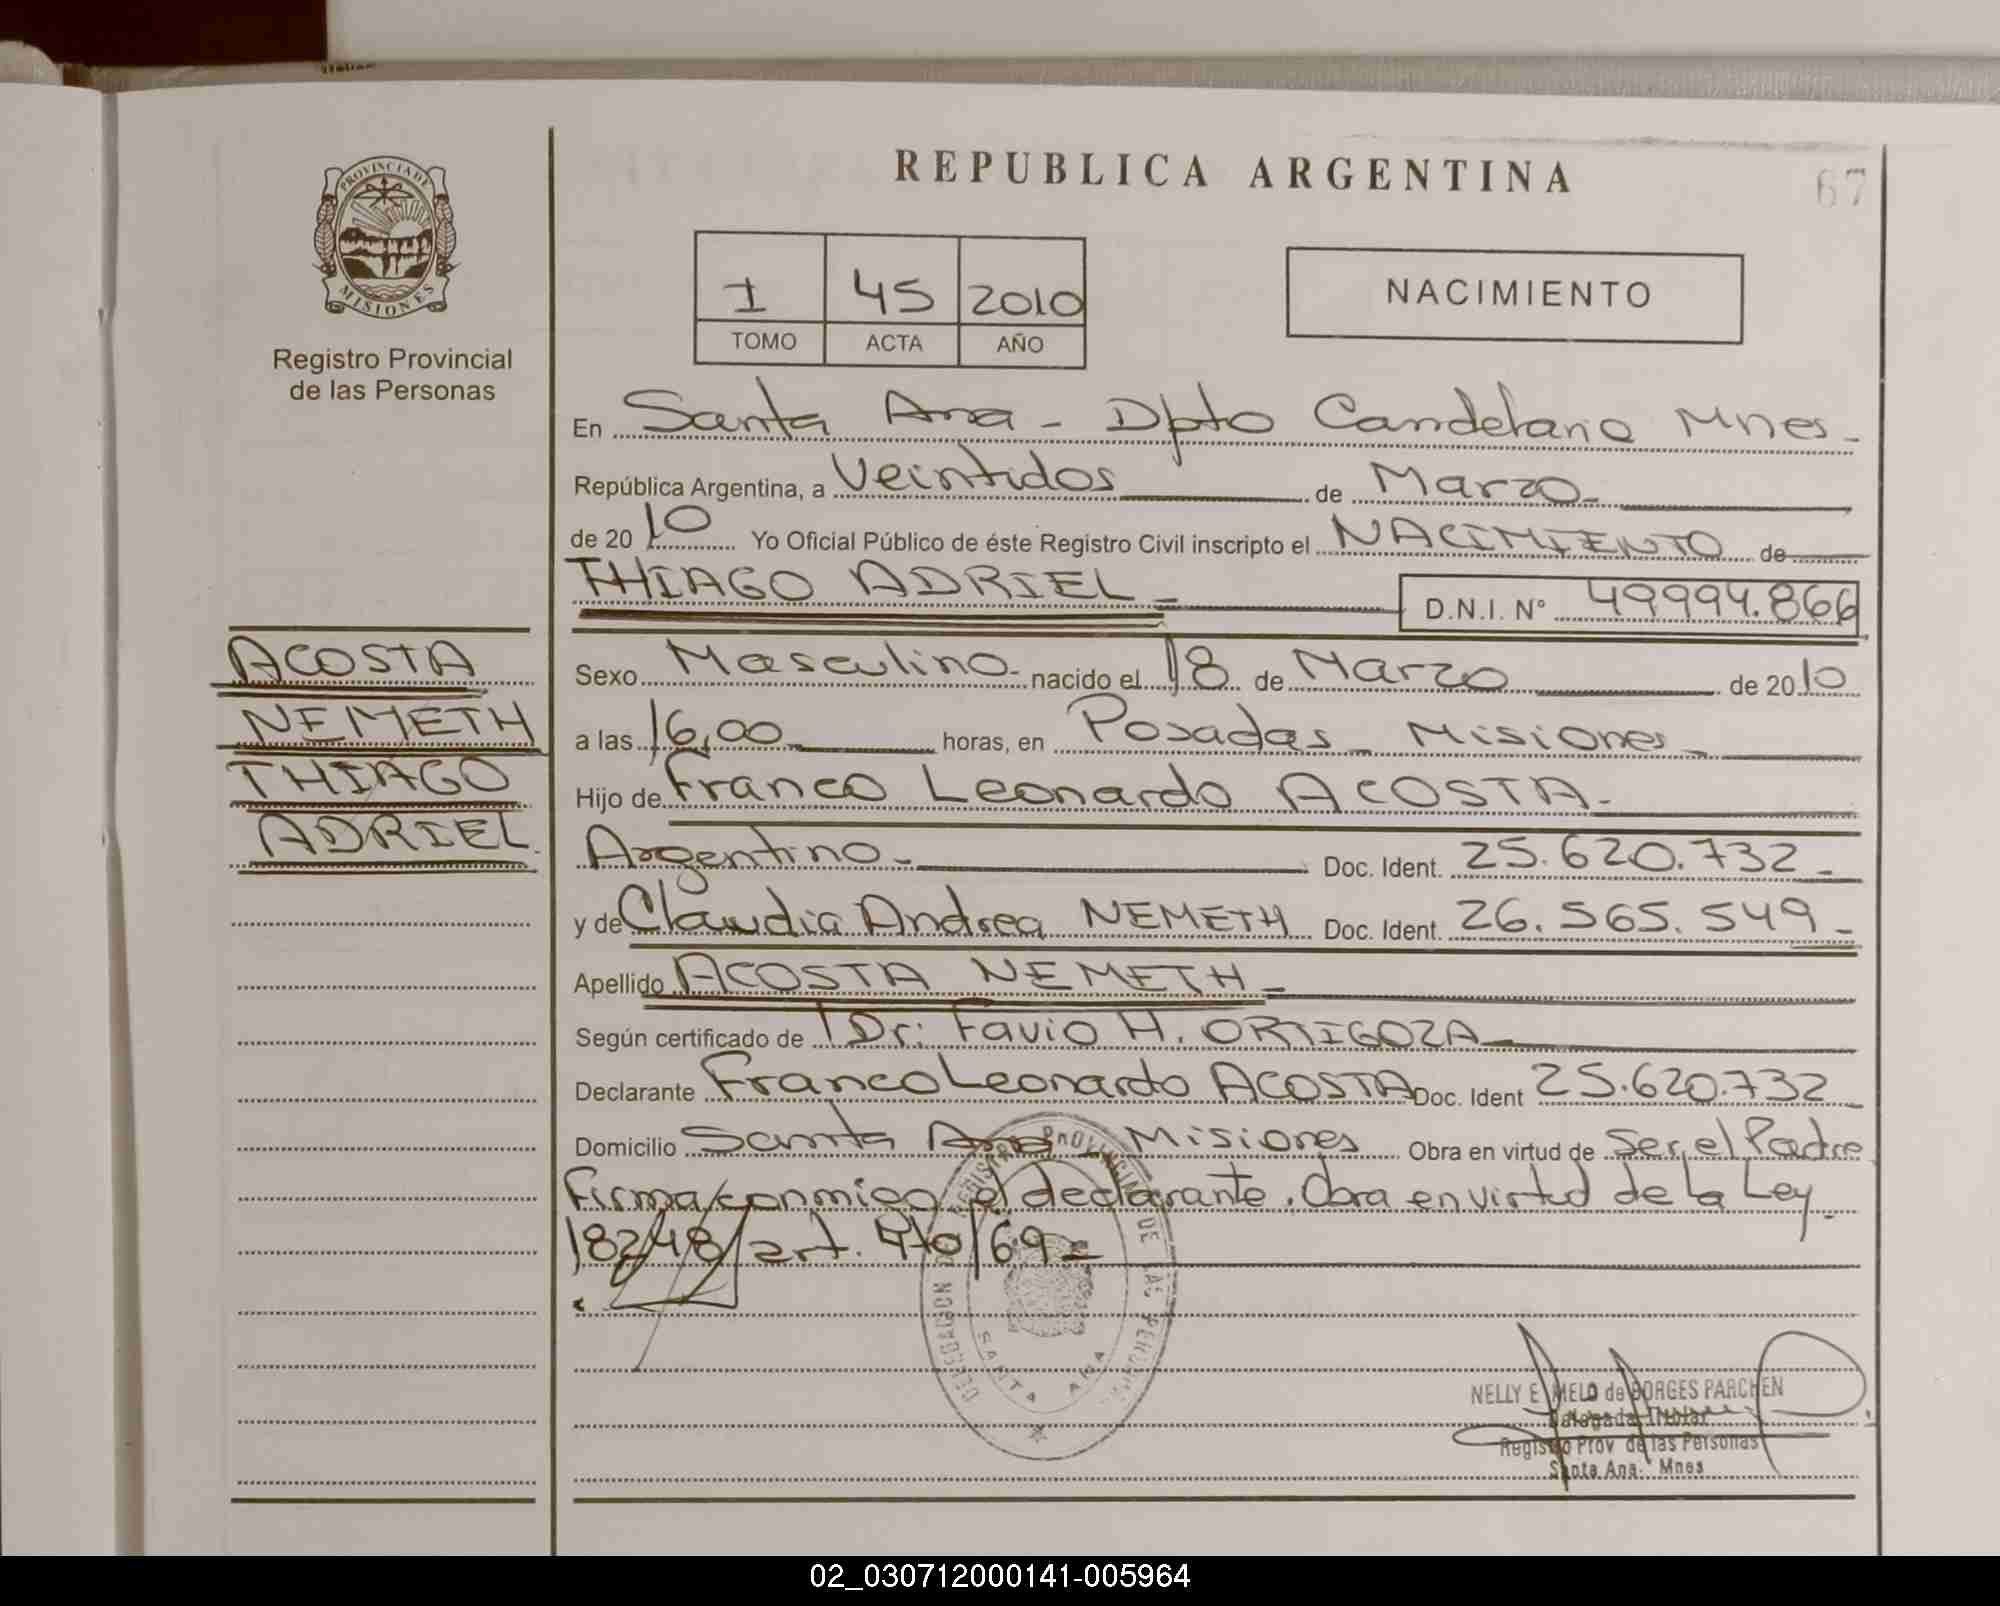 REPUBLICA ARGENTINA
67
PROVINCIA DE
MISIONES
Registro Provincial
de las Personas
I 45 2010
TOMO ACTA AÑO
NACIMIENTO
En Santa Ana - Dpto Candelaria Mnes -
República Argentina, a Veintidos de Marzo -
de 2010 Yo Oficial Público de éste Registro Civil inscripto el NACIMIENTO de
THIAGO ADRIEL - D.N.I. N° 49994.866
ACOSTA
NEMETH
THIAGO
ADRIEL.
Sexo Masculino - nacido el 18 de Marzo de 2010
a las 16,00 horas, en Posadas - Misiones -
Hijo de Franco Leonardo ACOSTA -
Argentino - Doc. Ident. 25.620.732 -
y de Claudia Andrea NEMETH Doc. Ident. 26.565.549 -
Apellido ACOSTA NEMETH -
Según certificado de Dr: Favio H. ORTIGOZA
Declarante Franco Leonardo ACOSTA Doc. Ident 25.620.732
Domicilio Santa Ana Misiones Obra en virtud de Ser el Padre
Firma conmigo el declarante. Obra en virtud de la Ley
18248 art. 4to/69 -
REGISTRO PROVINCIAL DE LAS PERSONAS
SANTA ANA
NELLY E MELO de BORGES PARCHEN
Delegada Titular
Registro Prov de las Personas
Santa Ana - Mnes
02_030712000141-005964